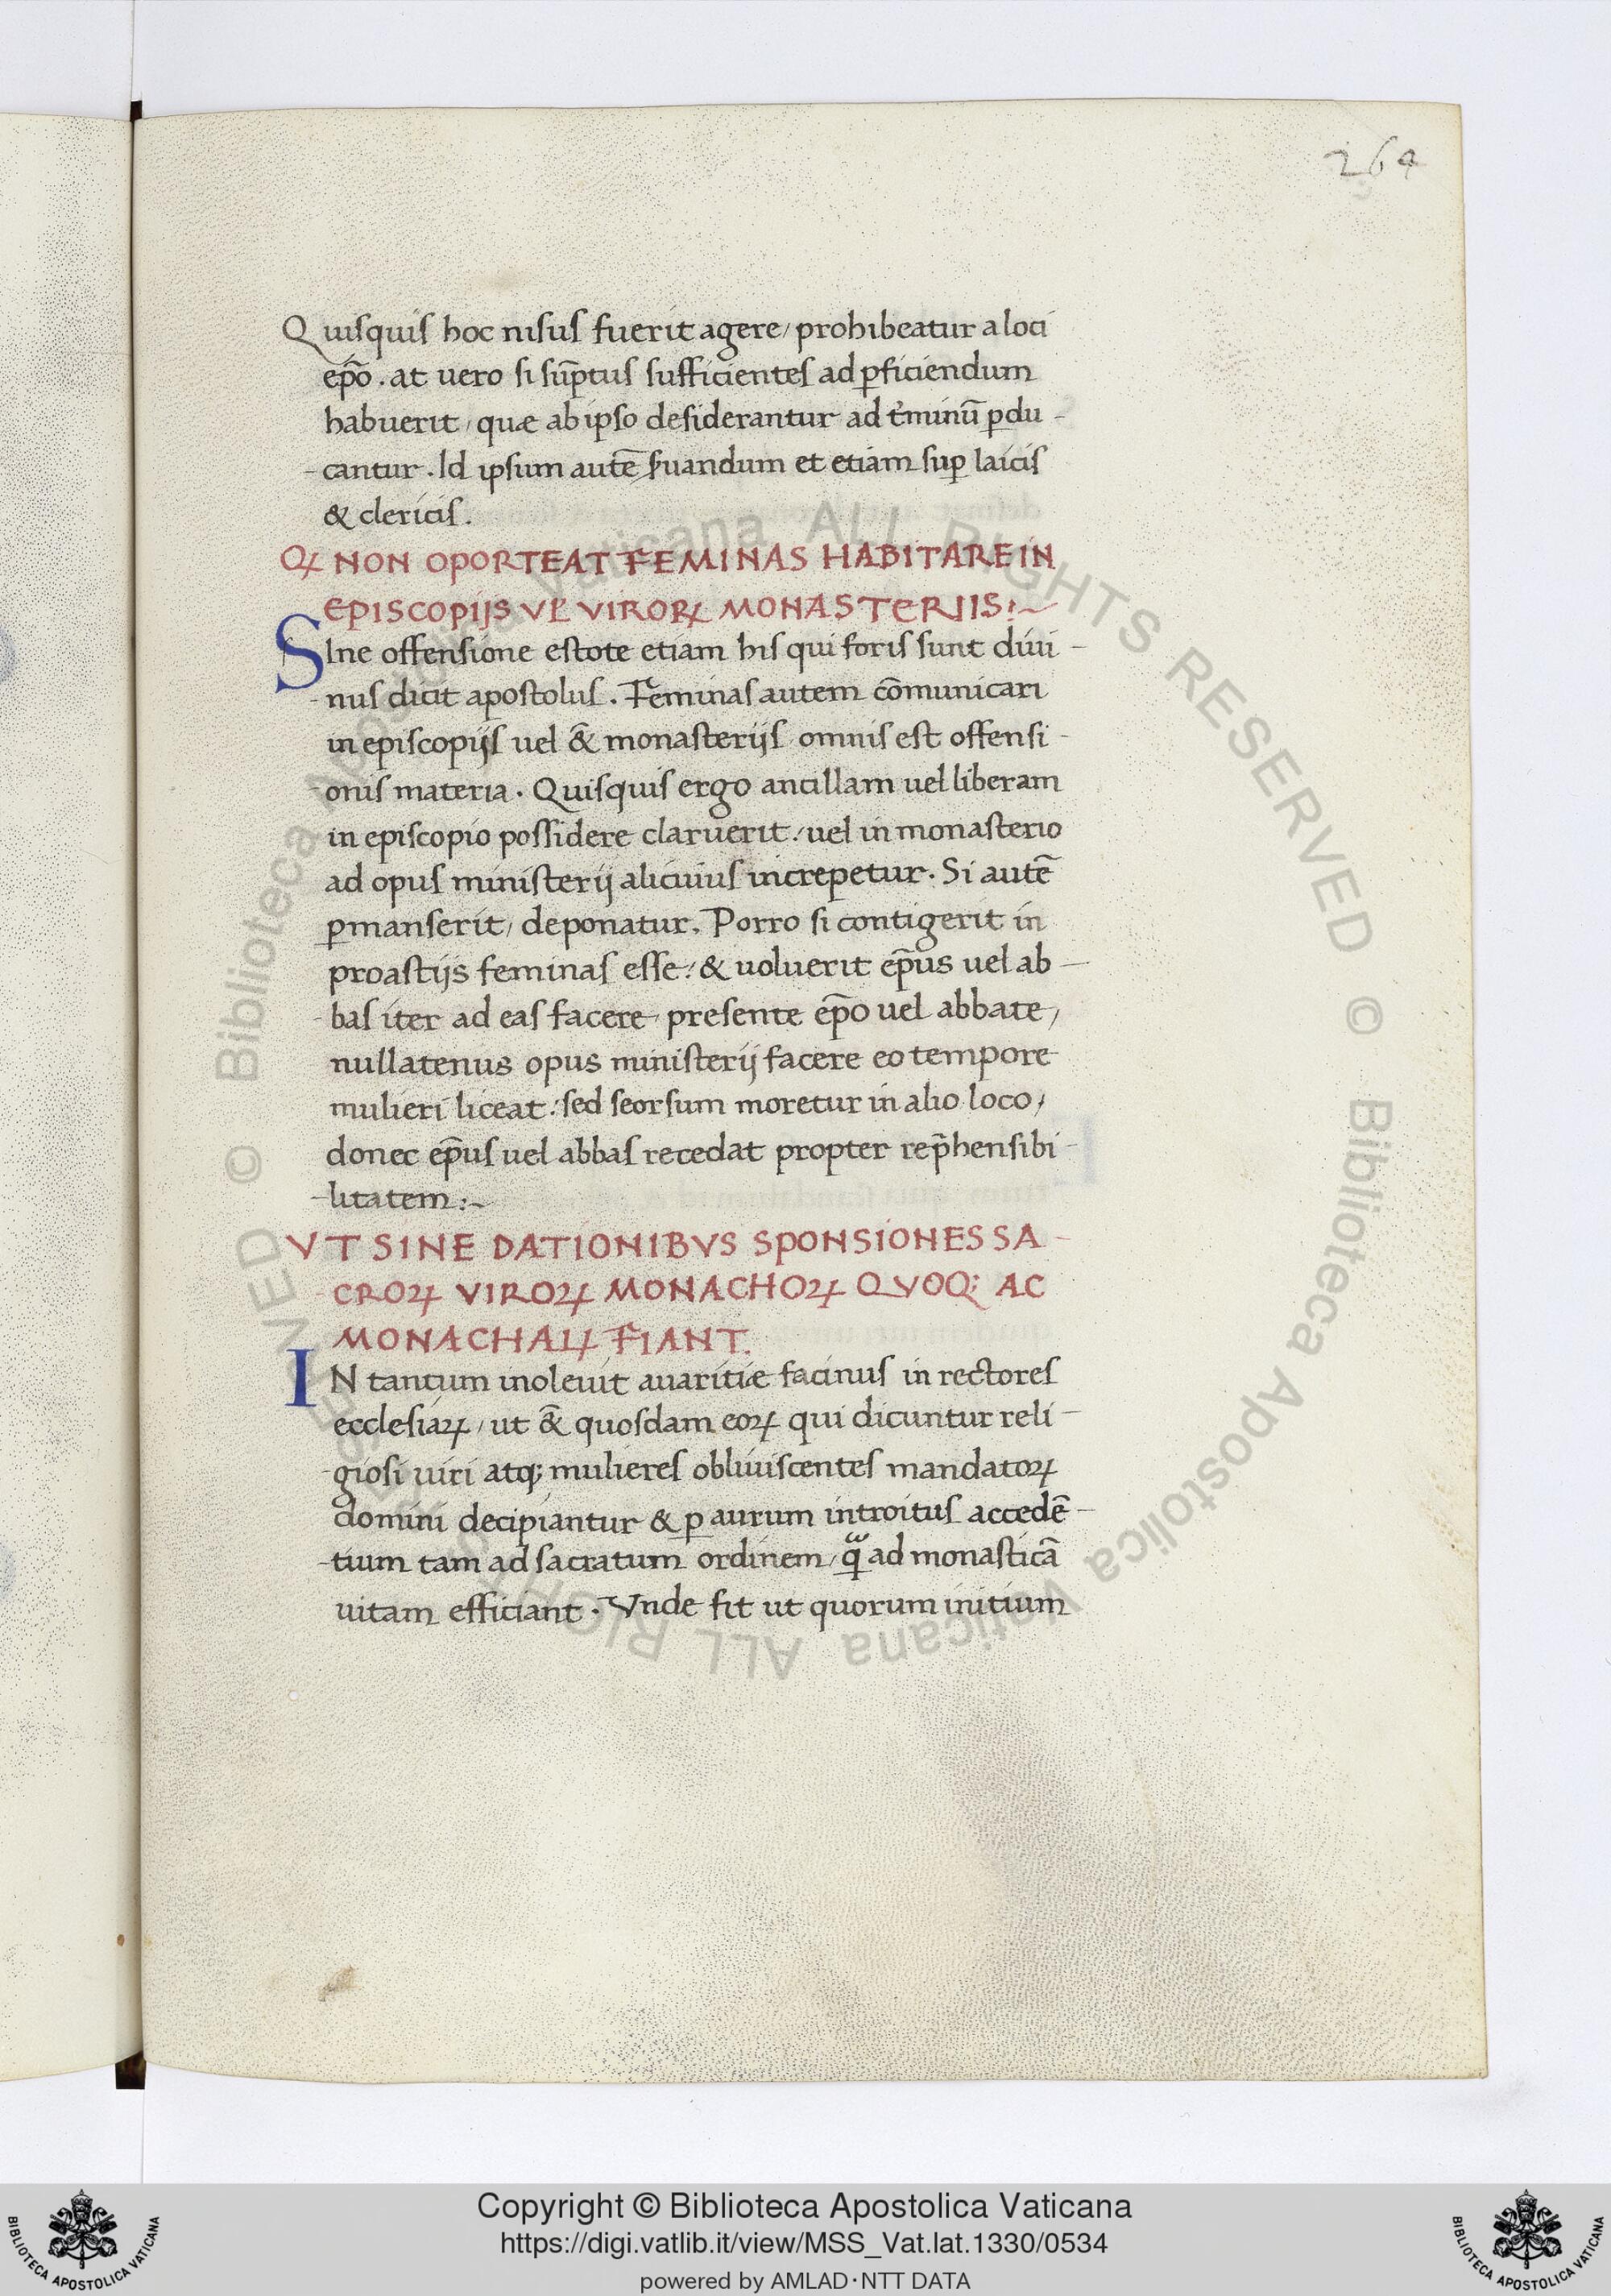 264
Quisquis hoc nisus fuerit agere, prohibeatur a loci
ep̃o. at uero si sũptus sufficientes ad ꝑficiendum
habuerit, quæ ab ipso desiderantur ad t̃minũ ꝑdu-
-cantur. Id ipsum autẽ ẜuandum et etiam suꝑ laicis
& clericis.
Qꝝ NON OPORTEAT FEMINAS HABITARE IN
EPISCOPIJS VEL̃ VIROꝝ MONASTERIIS:~
SIne offensione estote etiam his qui foris sunt diui-
-nus dicit apostolus. Feminas autem cõmunicari
in episcopijs uel &̃ monasterijs omnis est offensi-
-onis materia. Quisquis ergo ancillam uel liberam
in episcopio possidere claruerit: uel in monasterio
ad opus ministerij alicuius increpetur. Si autẽ
ꝑmanserit, deponatur. Porro si contigerit in
proastijs feminas esse: & uoluerit ep̃us uel ab-
-bas iter ad eas facere, presente ep̃o uel abbate,
nullatenus opus ministerij facere eo tempore
mulieri liceat: sed seorsum moretur in alio loco,
donec ep̃us uel abbas recedat propter rep̃hensibi-
-litatem:~
VT SINE DATIONIBVS SPONSIONES SA-
-CROꝝ VIROꝝ MONACHOꝝ QVOQ; AC
MONACHALꝝ FIANT.
IN tantum inoleuit auaritiæ facinus in rectores
ecclesiaꝝ, ut &̃ quosdam eoꝝ qui dicuntur reli-
-giosi uiri atq; mulieres obliuiscentes mandatoꝝ
domini decipiantur & ꝑ aurum introitus accedẽ-
-tium tam ad sacratum ordinem, q̃ ad monasticã
uitam efficiant. Vnde fit ut quorum initium
© Biblioteca Apostolica Vaticana ALL RIGHTS RESERVED © Biblioteca Apostolica Vaticana ALL RIGHTS RESERVED
Copyright © Biblioteca Apostolica Vaticana
https://digi.vatlib.it/view/MSS_Vat.lat.1330/0534
powered by AMLAD・NTT DATA
BIBLIOTECA APOSTOLICA VATICANA
BIBLIOTECA APOSTOLICA VATICANA